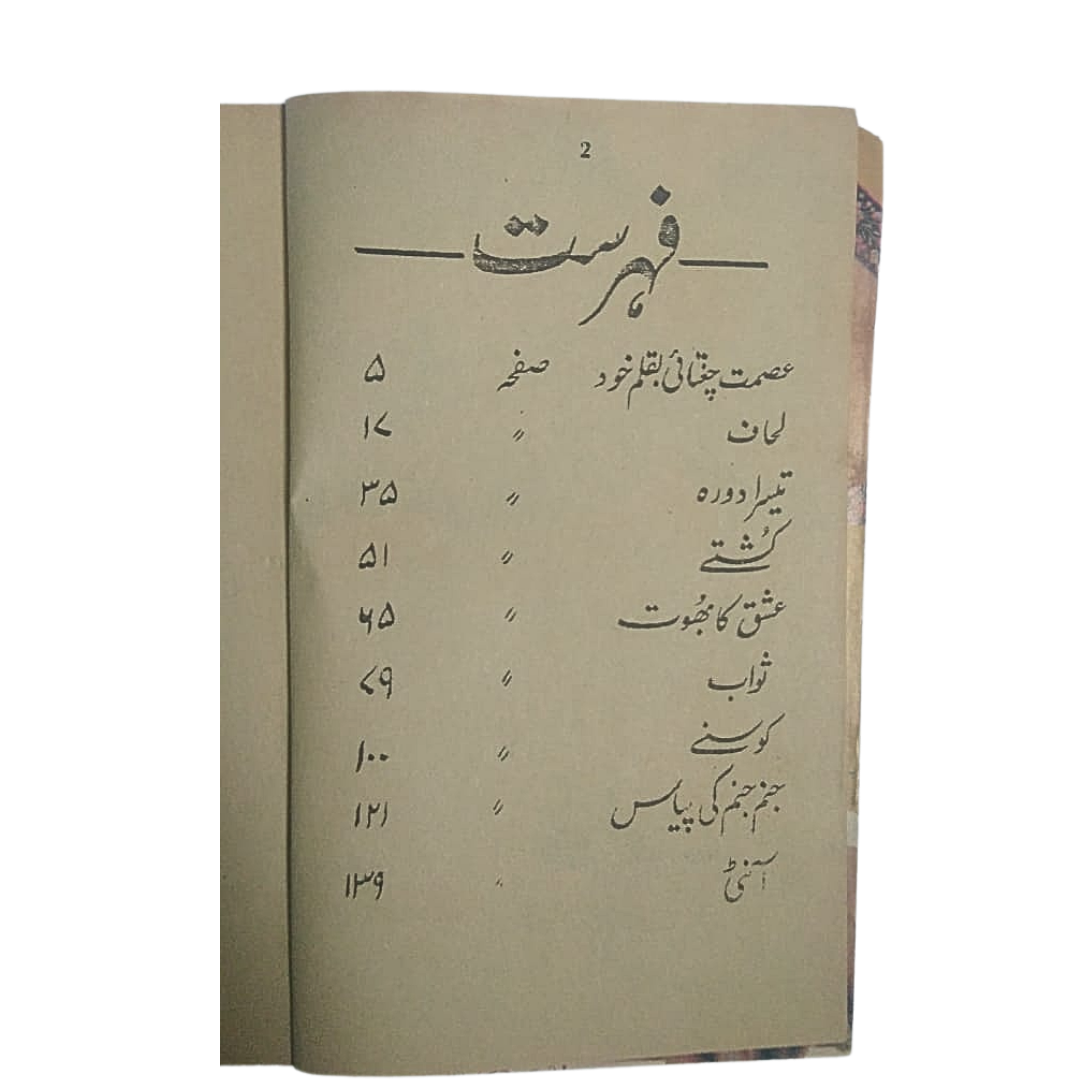 2
فہرست
عصمت چغتائی بقلم خود صفحہ ۵
لحاف 〃 ۱۷
تیسرا دورہ 〃 ۳۵
کُشتے 〃 ۵۱
عشق کا بھُوت 〃 ۶۵
ثواب 〃 ۷۹
کوسنے 〃 ۱۰۰
جنم جنم کی پیاس 〃 ۱۲۱
آنٹی 〃 ۱۳۹